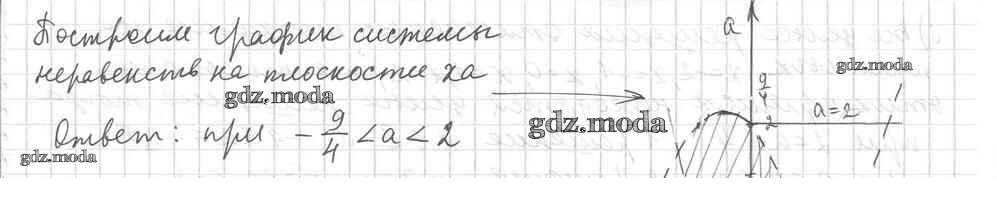 Построим график системы
неравенств на плоскости xa
gdz.moda
Ответ: при -9/4 < a < 2
gdz.moda
gdz.moda
a
gdz.moda
9/4
a=2
2